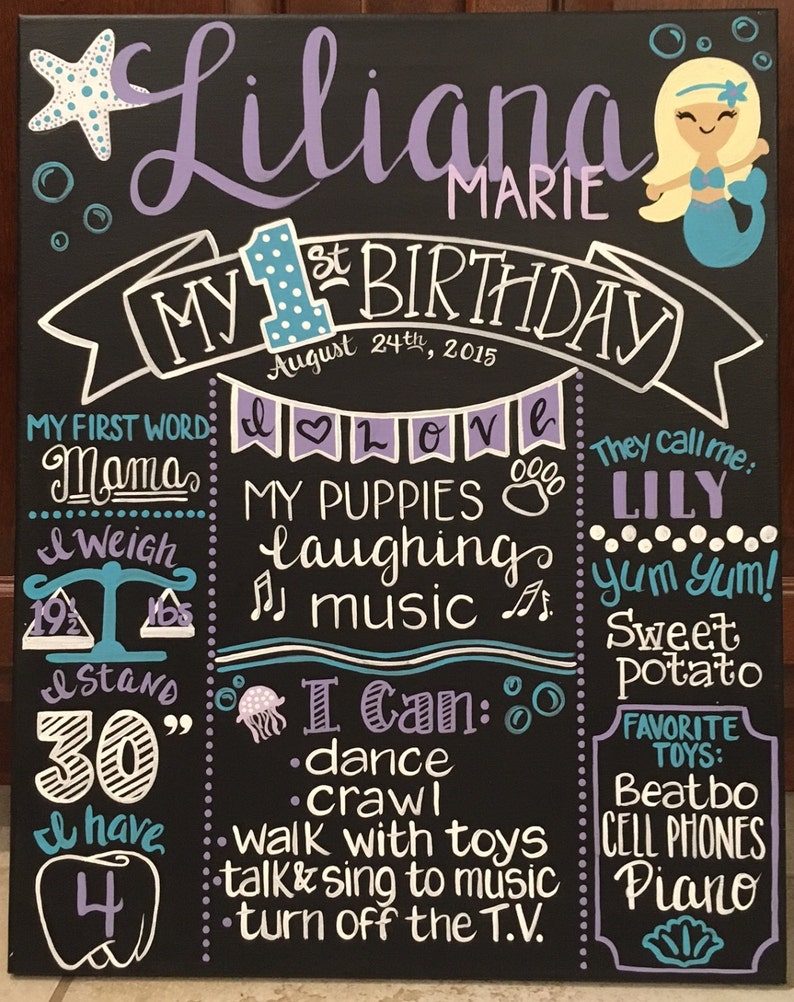 Liliana
MARIE
MY 1st BIRTHDAY
August 24th, 2015
MY FIRST WORD
Mama
I WEIGH
19½ lbs
I STAND
30"
I have
4
I LOVE
MY PUPPIES
laughing
music
I Can:
•dance
•crawl
•walk with toys
•talk & sing to music
•turn off the T.V.
They call me:
LILY
yum yum!
Sweet
potato
FAVORITE
TOYS:
Beatbo
CELL PHONES
Piano